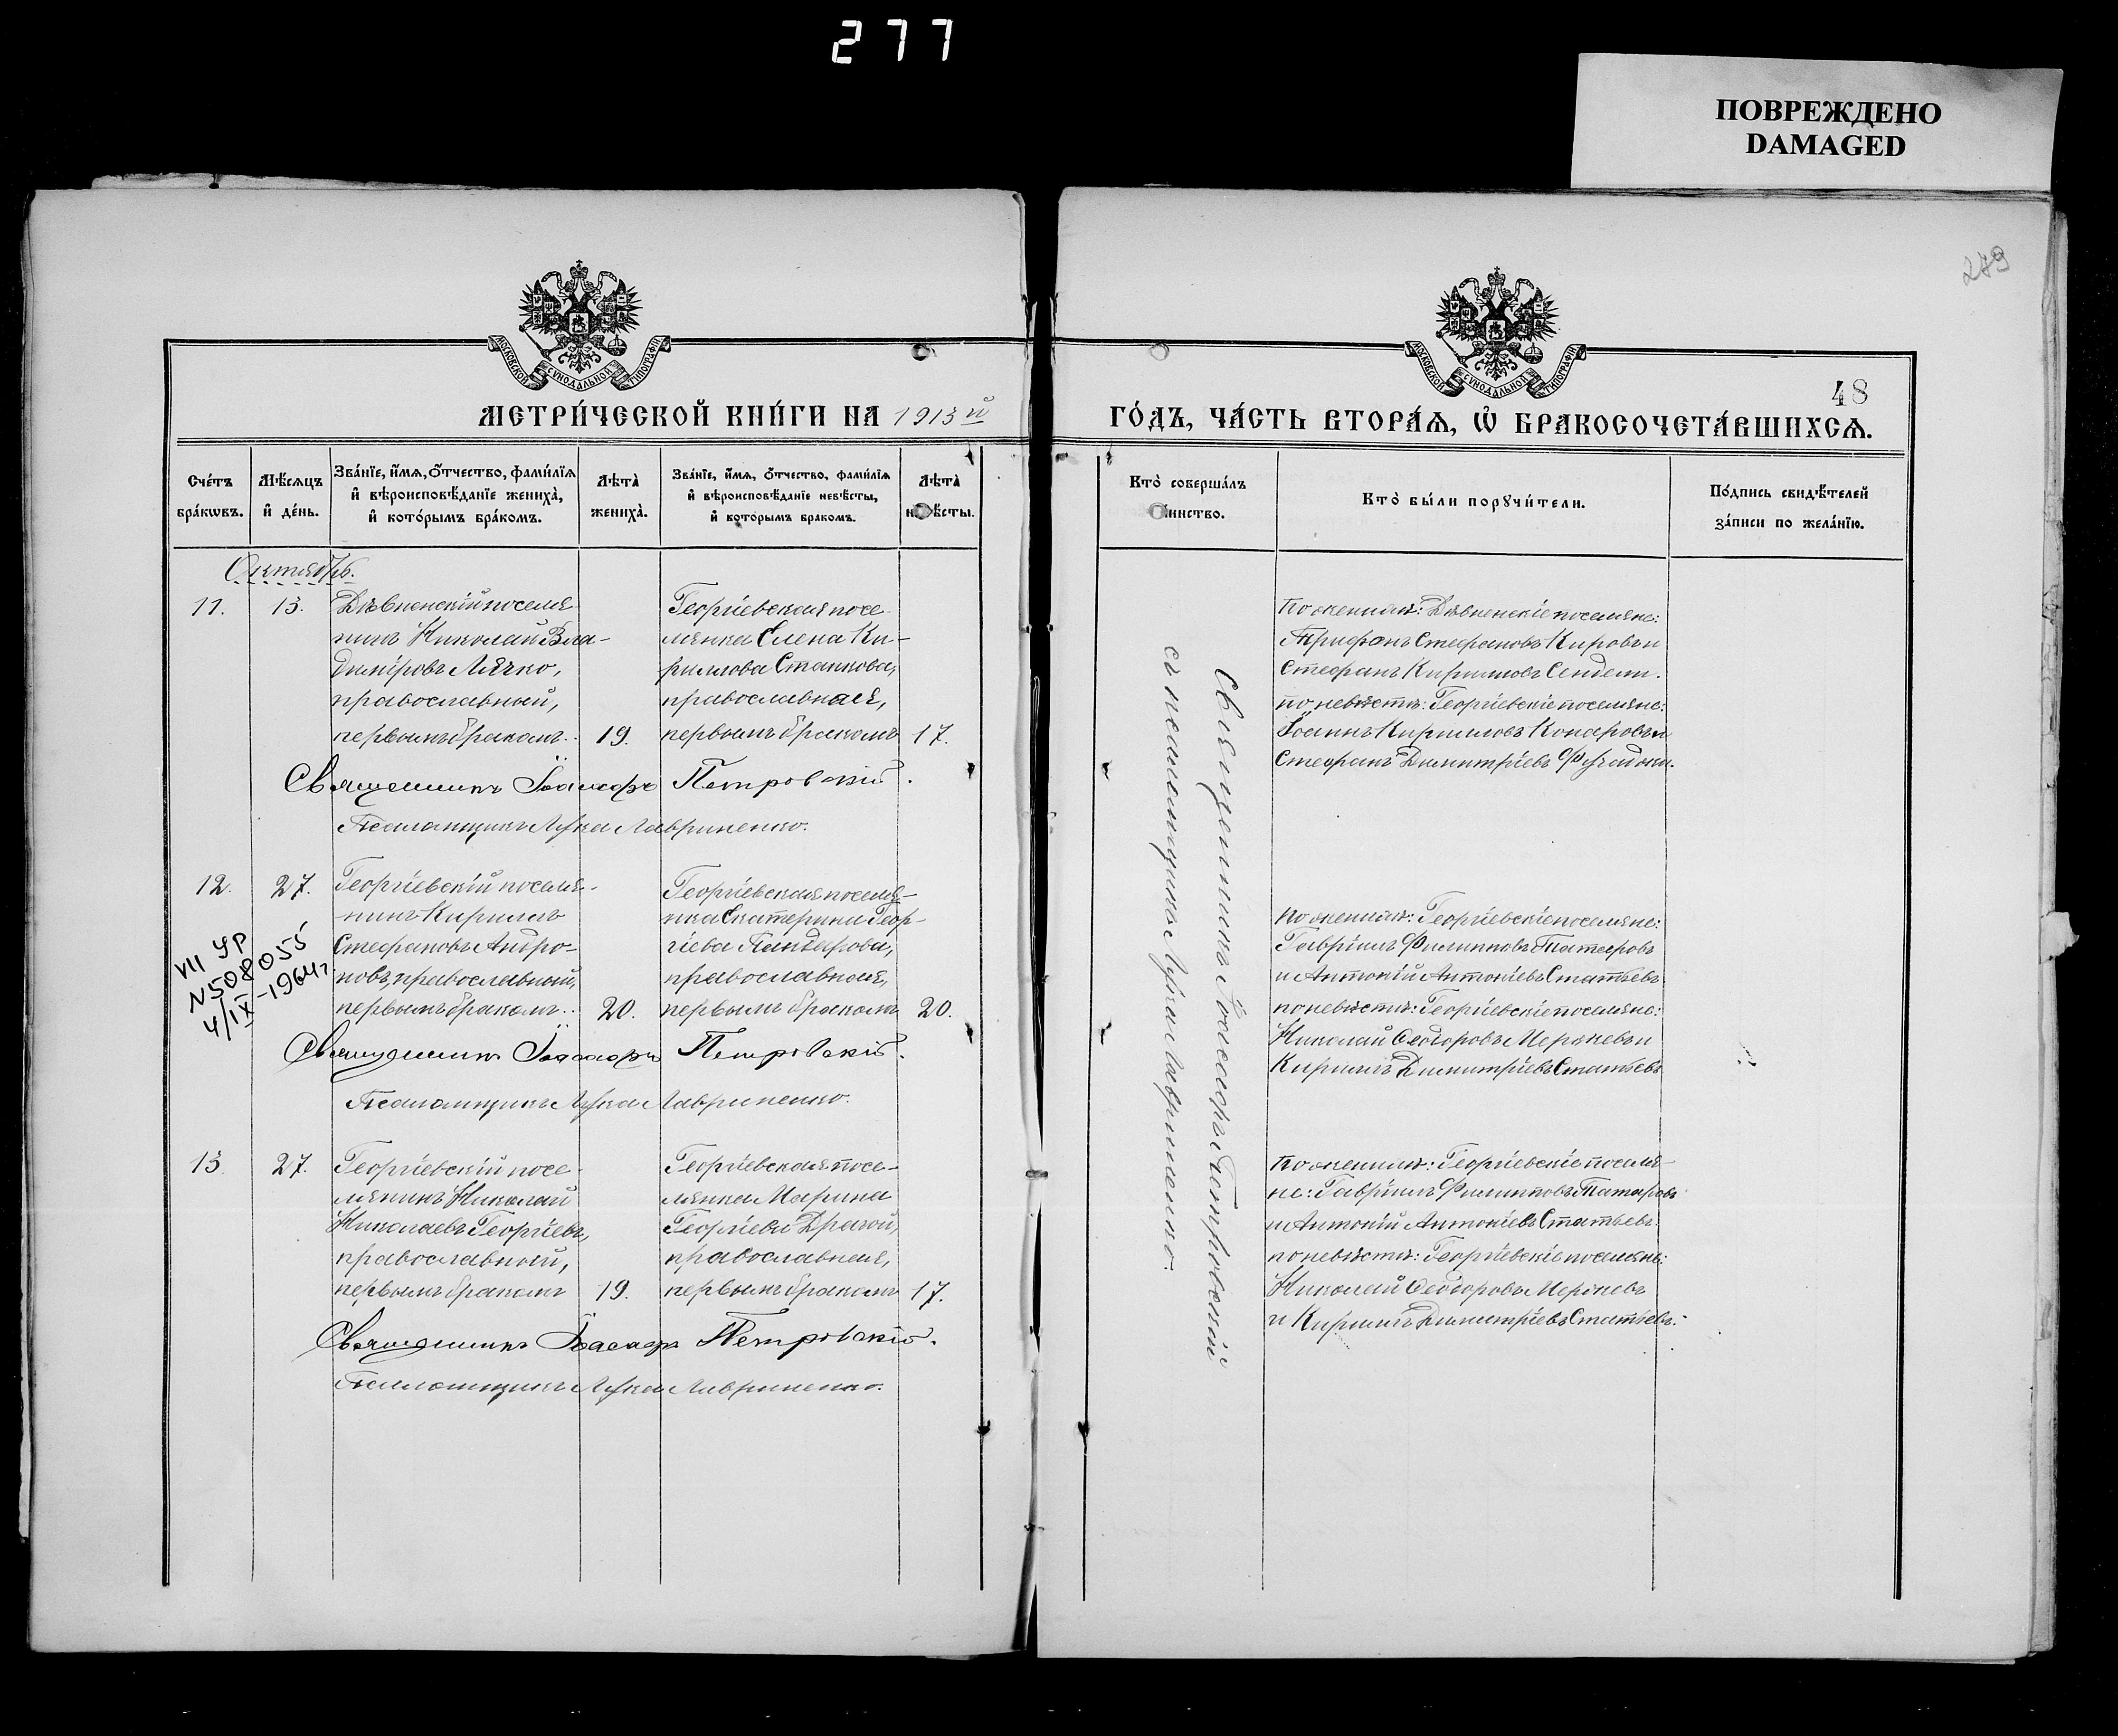 277
ПОВРЕЖДЕНО
DAMAGED
289
МОСКОВСКОЙ СУНОДАЛЬНОЙ ТИПОГРАФІИ
МОСКОВСКОЙ СУНОДАЛЬНОЙ ТИПОГРАФІИ
48
МЕТРИ́ЧЕСКОЙ КНИ́ГИ НА 1913й
ГО́ДЪ, ЧА́СТЬ ВТОРА́Ѧ, Ѡ҆ БРАКОСОЧЕТА́ВШИХСѦ.
Сче́тъ бра́кѡвъ.
Мѣ́сѧцъ и҆ де́нь.
Зва́нїе, и҆́мѧ, ѻ҆́тчество, фами́лїѧ
и҆ вѣроисповѣ́данїе жениха̀,
и҆ кото́рымъ бра́комъ.
Лѣ́та̀ жениха̀.
Зва́нїе, и҆́мѧ, ѻ҆́тчество, фами́лїѧ
и҆ вѣроисповѣ́данїе невѣ́сты,
и҆ кото́рымъ бракомъ.
Лѣ́та̀ невѣ́сты.
Кто̀ соверша́лъ таинство.
Кто̀ бы́ли порꙋчи́тели.
По́дпись свидѣ́телей
за́писи по жела́нїю.
Октябрь.
11.
13.
Дѣвненскій поселя-
нинъ Николай Вла-
диміровъ Лячко,
православный,
первымъ бракомъ.
19.
Георгіевская посе-
лянка Елена Ки-
риллова Станкова,
православная,
первымъ бракомъ
17.
По жениху: Дѣвненскіе поселяне:
Трифонъ Стефановъ Кировъ и
Стефанъ Кирилловъ Сендели.
по невѣстѣ: Георгіевскіе поселяне:
Іоаннъ Кирилловъ Комаровъ и
Стефанъ Димитріевъ
Священникъ Іоасафъ Петровскій.
Псаломщикъ Лука Лавриненко.
12.
27.
Георгіевскій поселя-
нинъ Кириллъ
Стефановъ Андро-
новъ, православный,
первымъ бракомъ.
20.
Георгіевская поселя-
нка Екатерина Геор-
гіева Пандарова,
православная,
первымъ бракомъ
20.
VII УР
N508055
4/IX-1964г.
По жениху: Георгіевскіе поселяне:
Гавріилъ Филипповъ Татаровъ
и Антоній Антоніевъ Статьевъ
по невѣстѣ: Георгіевскіе поселяне:
Николай Ѳеодоровъ Мержевъ и
Кириллъ Димитріевъ Статьевъ
Священникъ Іоасафъ Петровскій.
Псаломщикъ Лука Лавриненко.
13.
27.
Георгіевскій посе-
лянинъ Николай
Николаевъ Георгіевъ,
православный,
первымъ бракомъ
19.
Георгіевская посе-
лянка Марина
Георгіева Драгой,
православная,
первымъ бракомъ
17.
По жениху: Георгіевскіе поселя-
не: Гавріилъ Филипповъ Татаровъ
и Антоній Антоніевъ Статьевъ.
по невѣстѣ: Георгіевскіе поселяне:
Николай Ѳеодоровъ Мержевъ
и Кириллъ Димитріевъ Статьевъ.
Священникъ Іоасафъ Петровскій.
Псаломщикъ Лука Лавриненко.
Священникъ Іоасафъ Петровскій
съ псаломщикомъ Лукою Лавриненко.